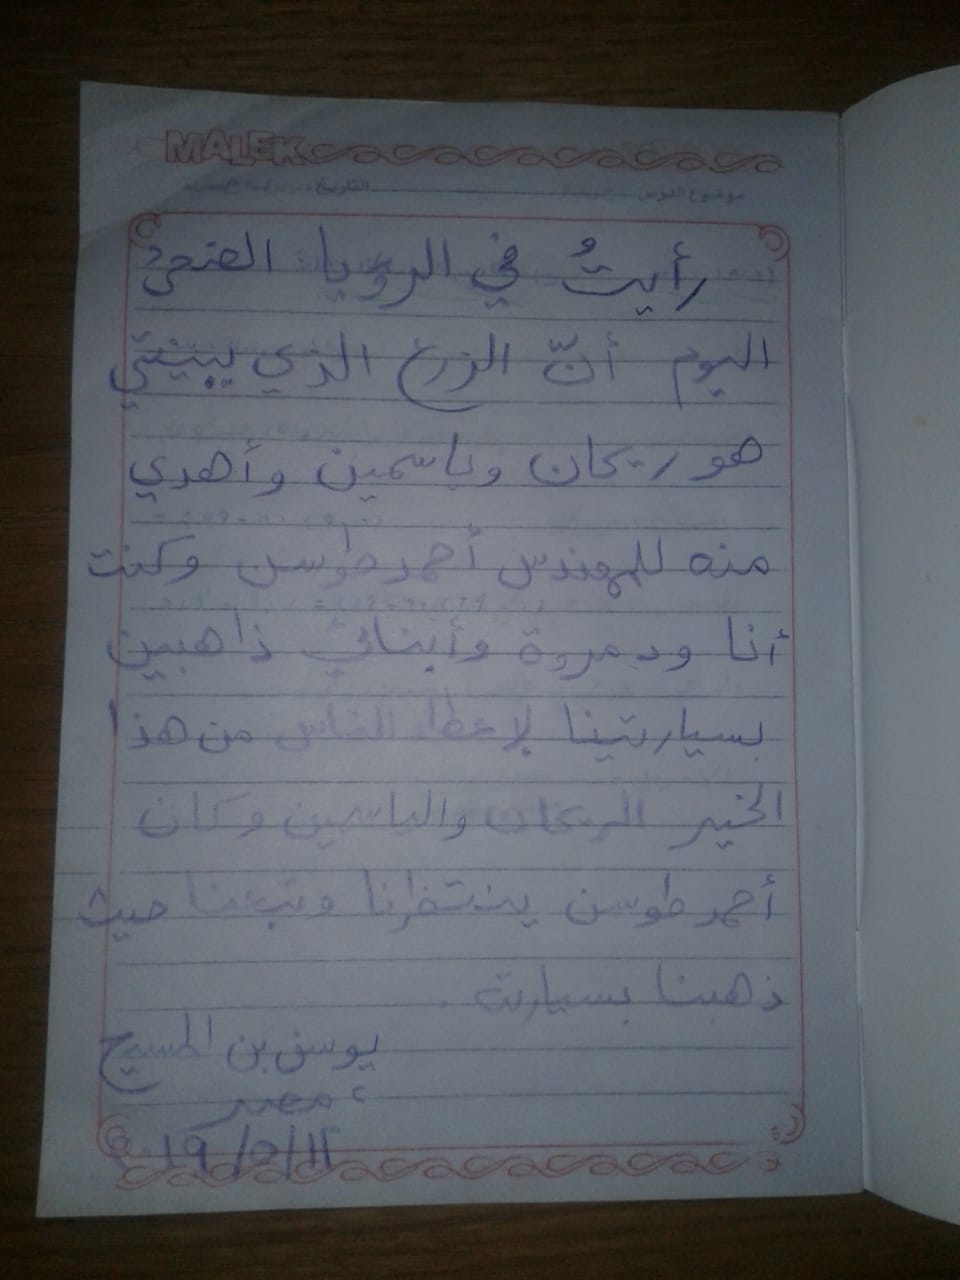 MALEK
موضوع الدرس التاريخ
رأيتُ في الرؤيا الضحى
اليوم أنّ الزرع الذي ببيتي
هو ريحان وياسمين وأهدي
منه للمهندس أحمد طوسن وكنت
أنا ود مروة وأبنائي ذاهبين
بسيارتينا لإعطاء الناس من هذا
الخير الريحان والياسمين وكان
أحمد طوسن ينتظرنا وتبعنا حيث
ذهبنا بسيارته .
يوسف بن المسيح
، مصر